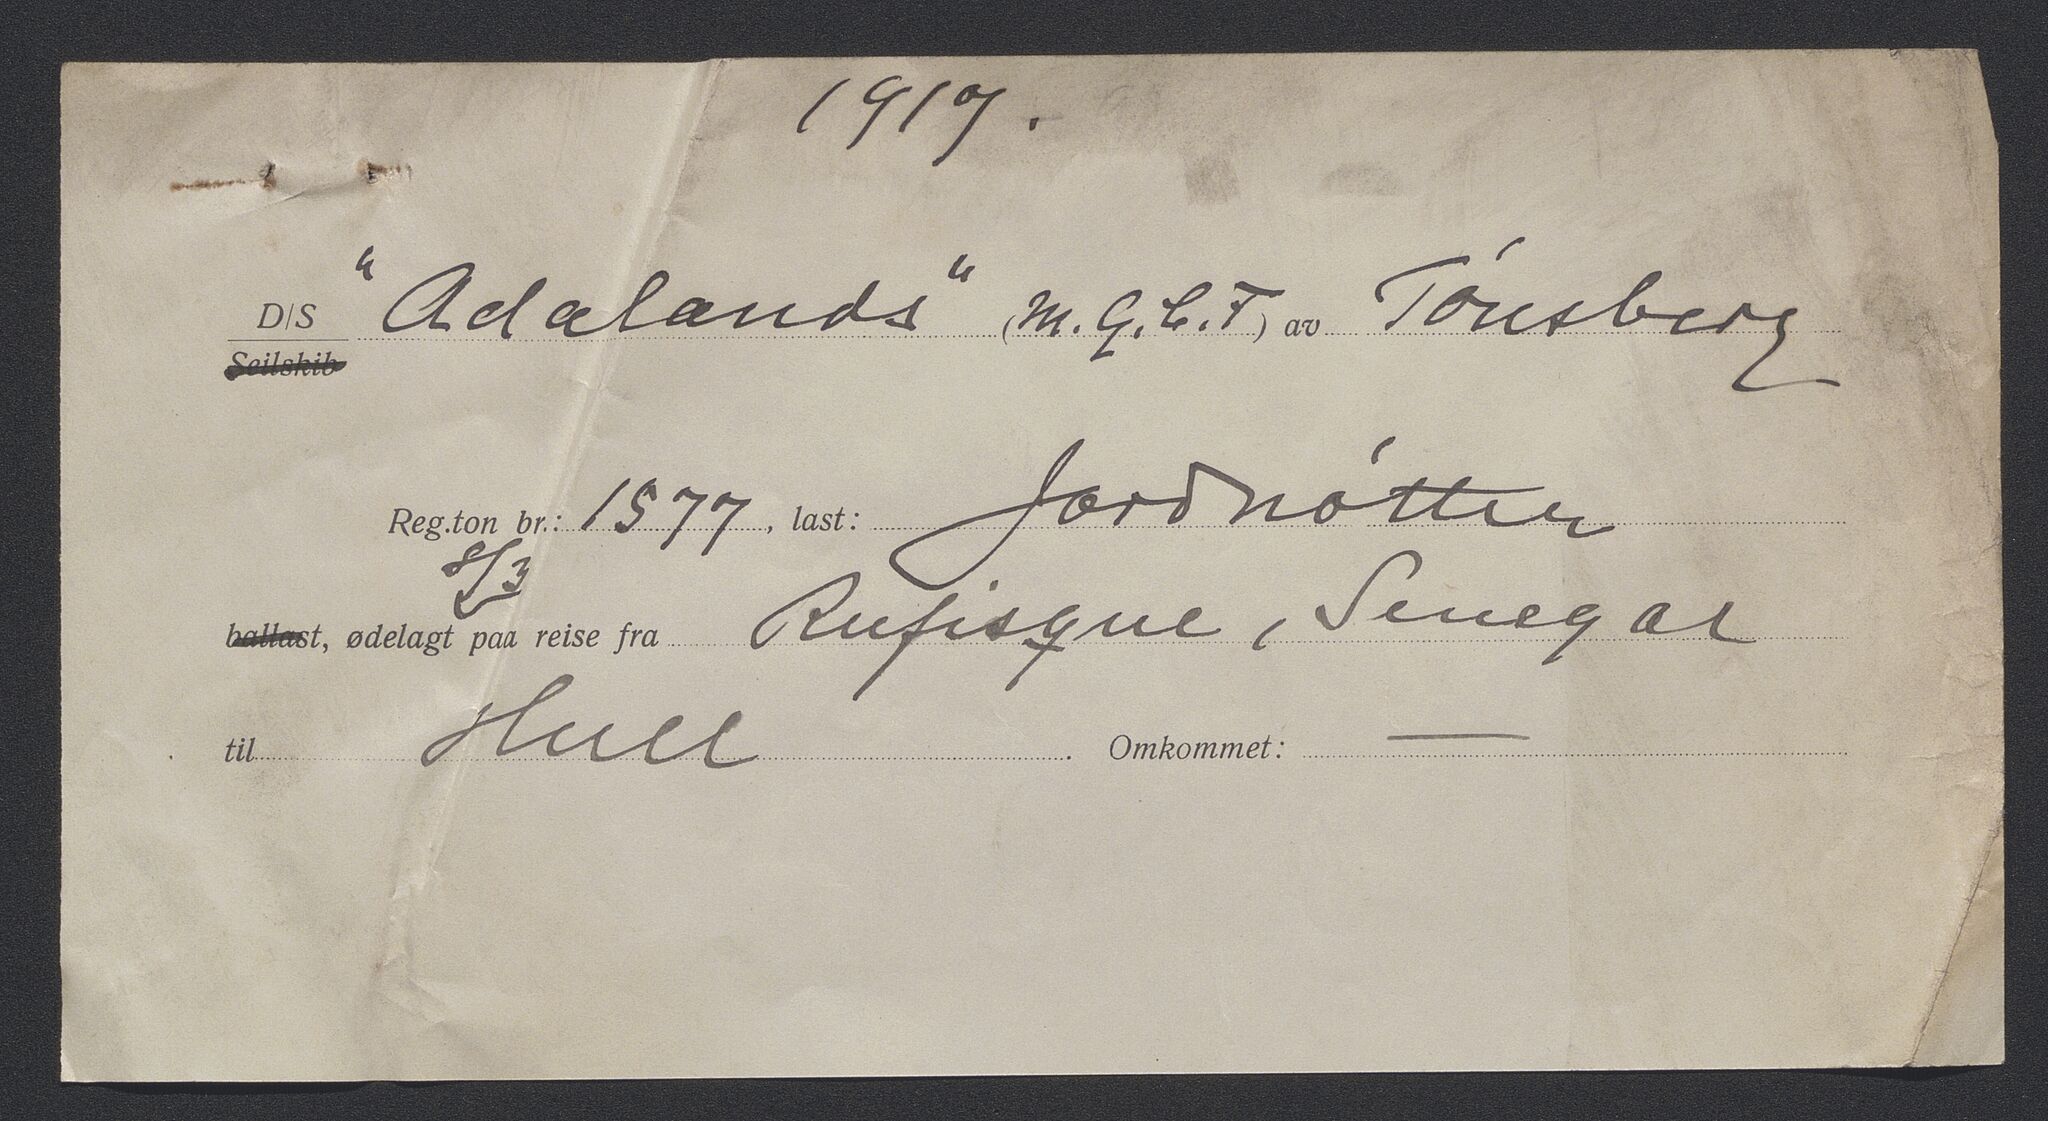 1917.
D/S "Adalands" (M.G.C.F) av Tönsberg
Seilskib
Reg.ton br.: 1577, last: Jordnötter
8/3
ballast, ødelagt paa reise fra Rufisque, Senegal
til Hull. Omkommet: —